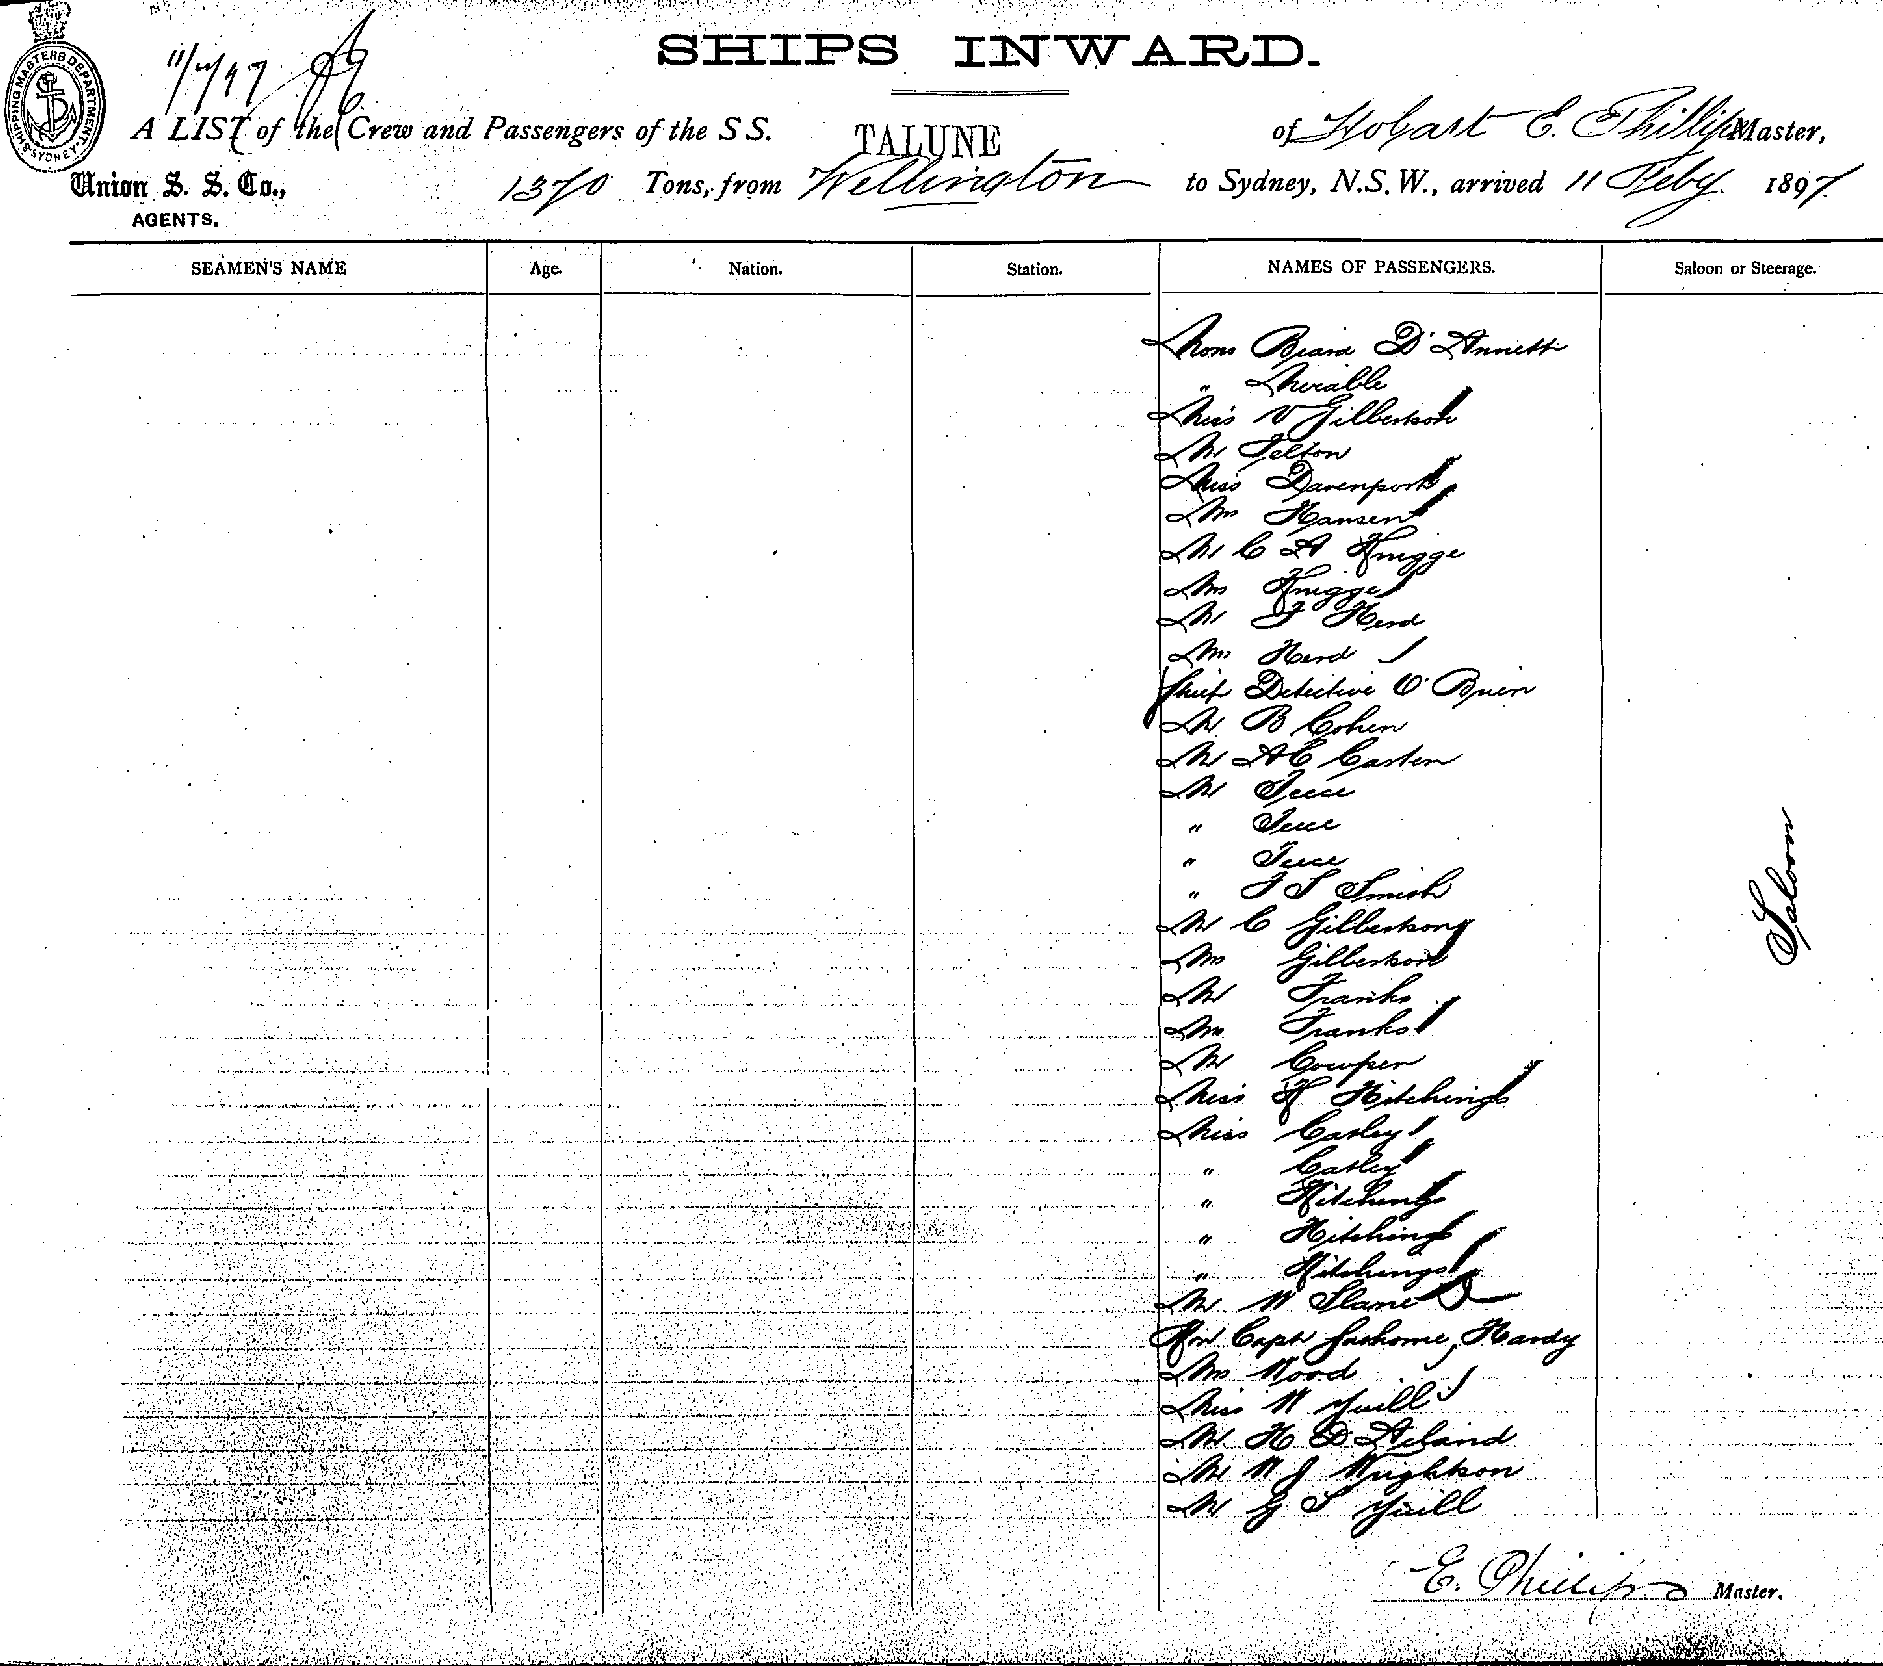 SHIPS INWARD.
SHIPPING MASTERS DEPARTMENT
SYDNEY
11/2/97
A LIST of the Crew and Passengers of the S S. TALUNE of Hobart E. Phillips Master,
Union S. S. Co., 1370 Tons, from Wellington to Sydney, N.S.W., arrived 11 Feby 1897
AGENTS.
SEAMEN'S NAME Age. Nation. Station. NAMES OF PASSENGERS. Saloon or Steerage.
Mons D'Annett
" Mirable
Miss V Gilbertson
Mr Felton
Miss Davenport
Mrs Hansen
Mr C A Knigge
Mrs Knigge
Mr F Herd
Mrs Herd
Chief Detective O'Brien
Mr B Cohen
Mr A E Casten
Mr Teece
" Teece
" Teece
" Smith
Mr C Gilbertson
Mrs Gilbertson
Mr Franks
Mrs Franks
Mr Cowper
Miss H Hitchings
Miss Catley
" Catley
" Hitchings
" Hitchings
" Hitchings
Mr W Slane
Hon Capt Hardy
Mrs Wood
Miss W Yuill
Mr H D Acland
Mr W J Wrightson
Mr G S Yuill
Saloon
E. Phillips Master.